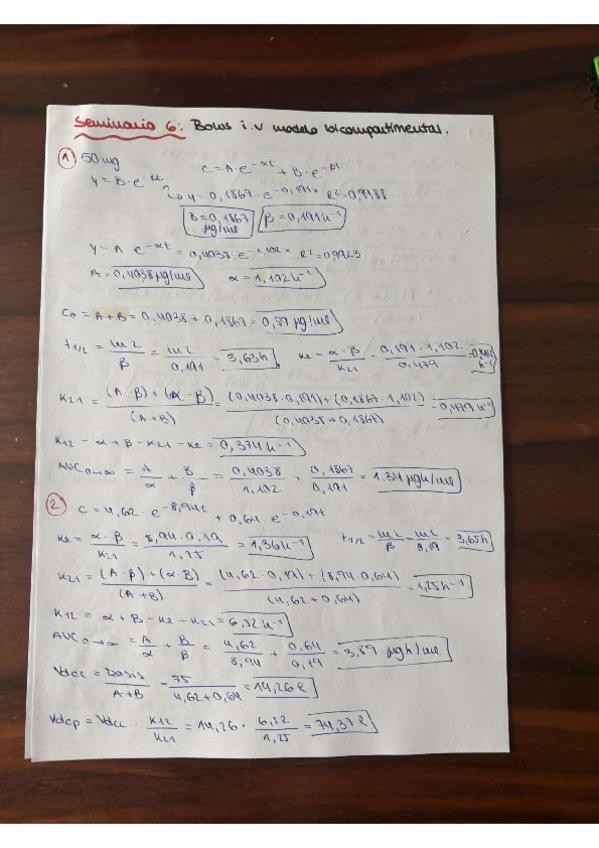 Seminario 6: Bolus i.v modelo bicompartimental.
① 50 mg
C = A·e^-αt + B·e^-βt
y = B·e^-βt
y = 0,1867·e^-0,191x R² = 0,9988
B = 0,1867 µg/ml β = 0,191 h⁻¹
y = A·e^-αt = 0,4038·e^-1,102x R² = 0,9923
A = 0,4038 µg/ml α = 1,102 h⁻¹
C₀ = A + B = 0,4038 + 0,1867 = 0,59 µg/ml
t₁/₂ = ln2/β = ln2/0,191 = 3,63 h Ke = α·β/K21 = 0,191·1,102/0,479 = h⁻¹
K21 = (A·β)+(α·B)/(A+B) = (0,4038·0,191)+(0,1867·1,102)/(0,4038+0,1867) = 0,479 h⁻¹
K12 = α + β - K21 - Ke = 0,374 h⁻¹
AUC₀→∞ = A/α + B/β = 0,4038/1,102 + 0,1867/0,191 = 1.34 µgh/ml
② C = 4,62·e^-8,94t + 0,64·e^-0,19t
Ke = α·β/K21 = 8,94·0,19/1,25 = 1,36 h⁻¹ t₁/₂ = ln2/β = ln2/0,19 = 3,65 h
K21 = (A·β)+(α·B)/(A+B) = (4,62·0,19)+(8,94·0,64)/(4,62+0,64) = 1,25 h⁻¹
K12 = α + β - Ke - K21 = 6,52 h⁻¹
AUC₀→∞ = A/α + B/β = 4,62/8,94 + 0,64/0,19 = 3,89 µgh/ml
Vdcc = Dosis/A+B = 75/4,62+0,64 = 14,26 l
Vdcp = Vdcc · K12/K21 = 14,26 · 6,52/1,25 = 74,37 l